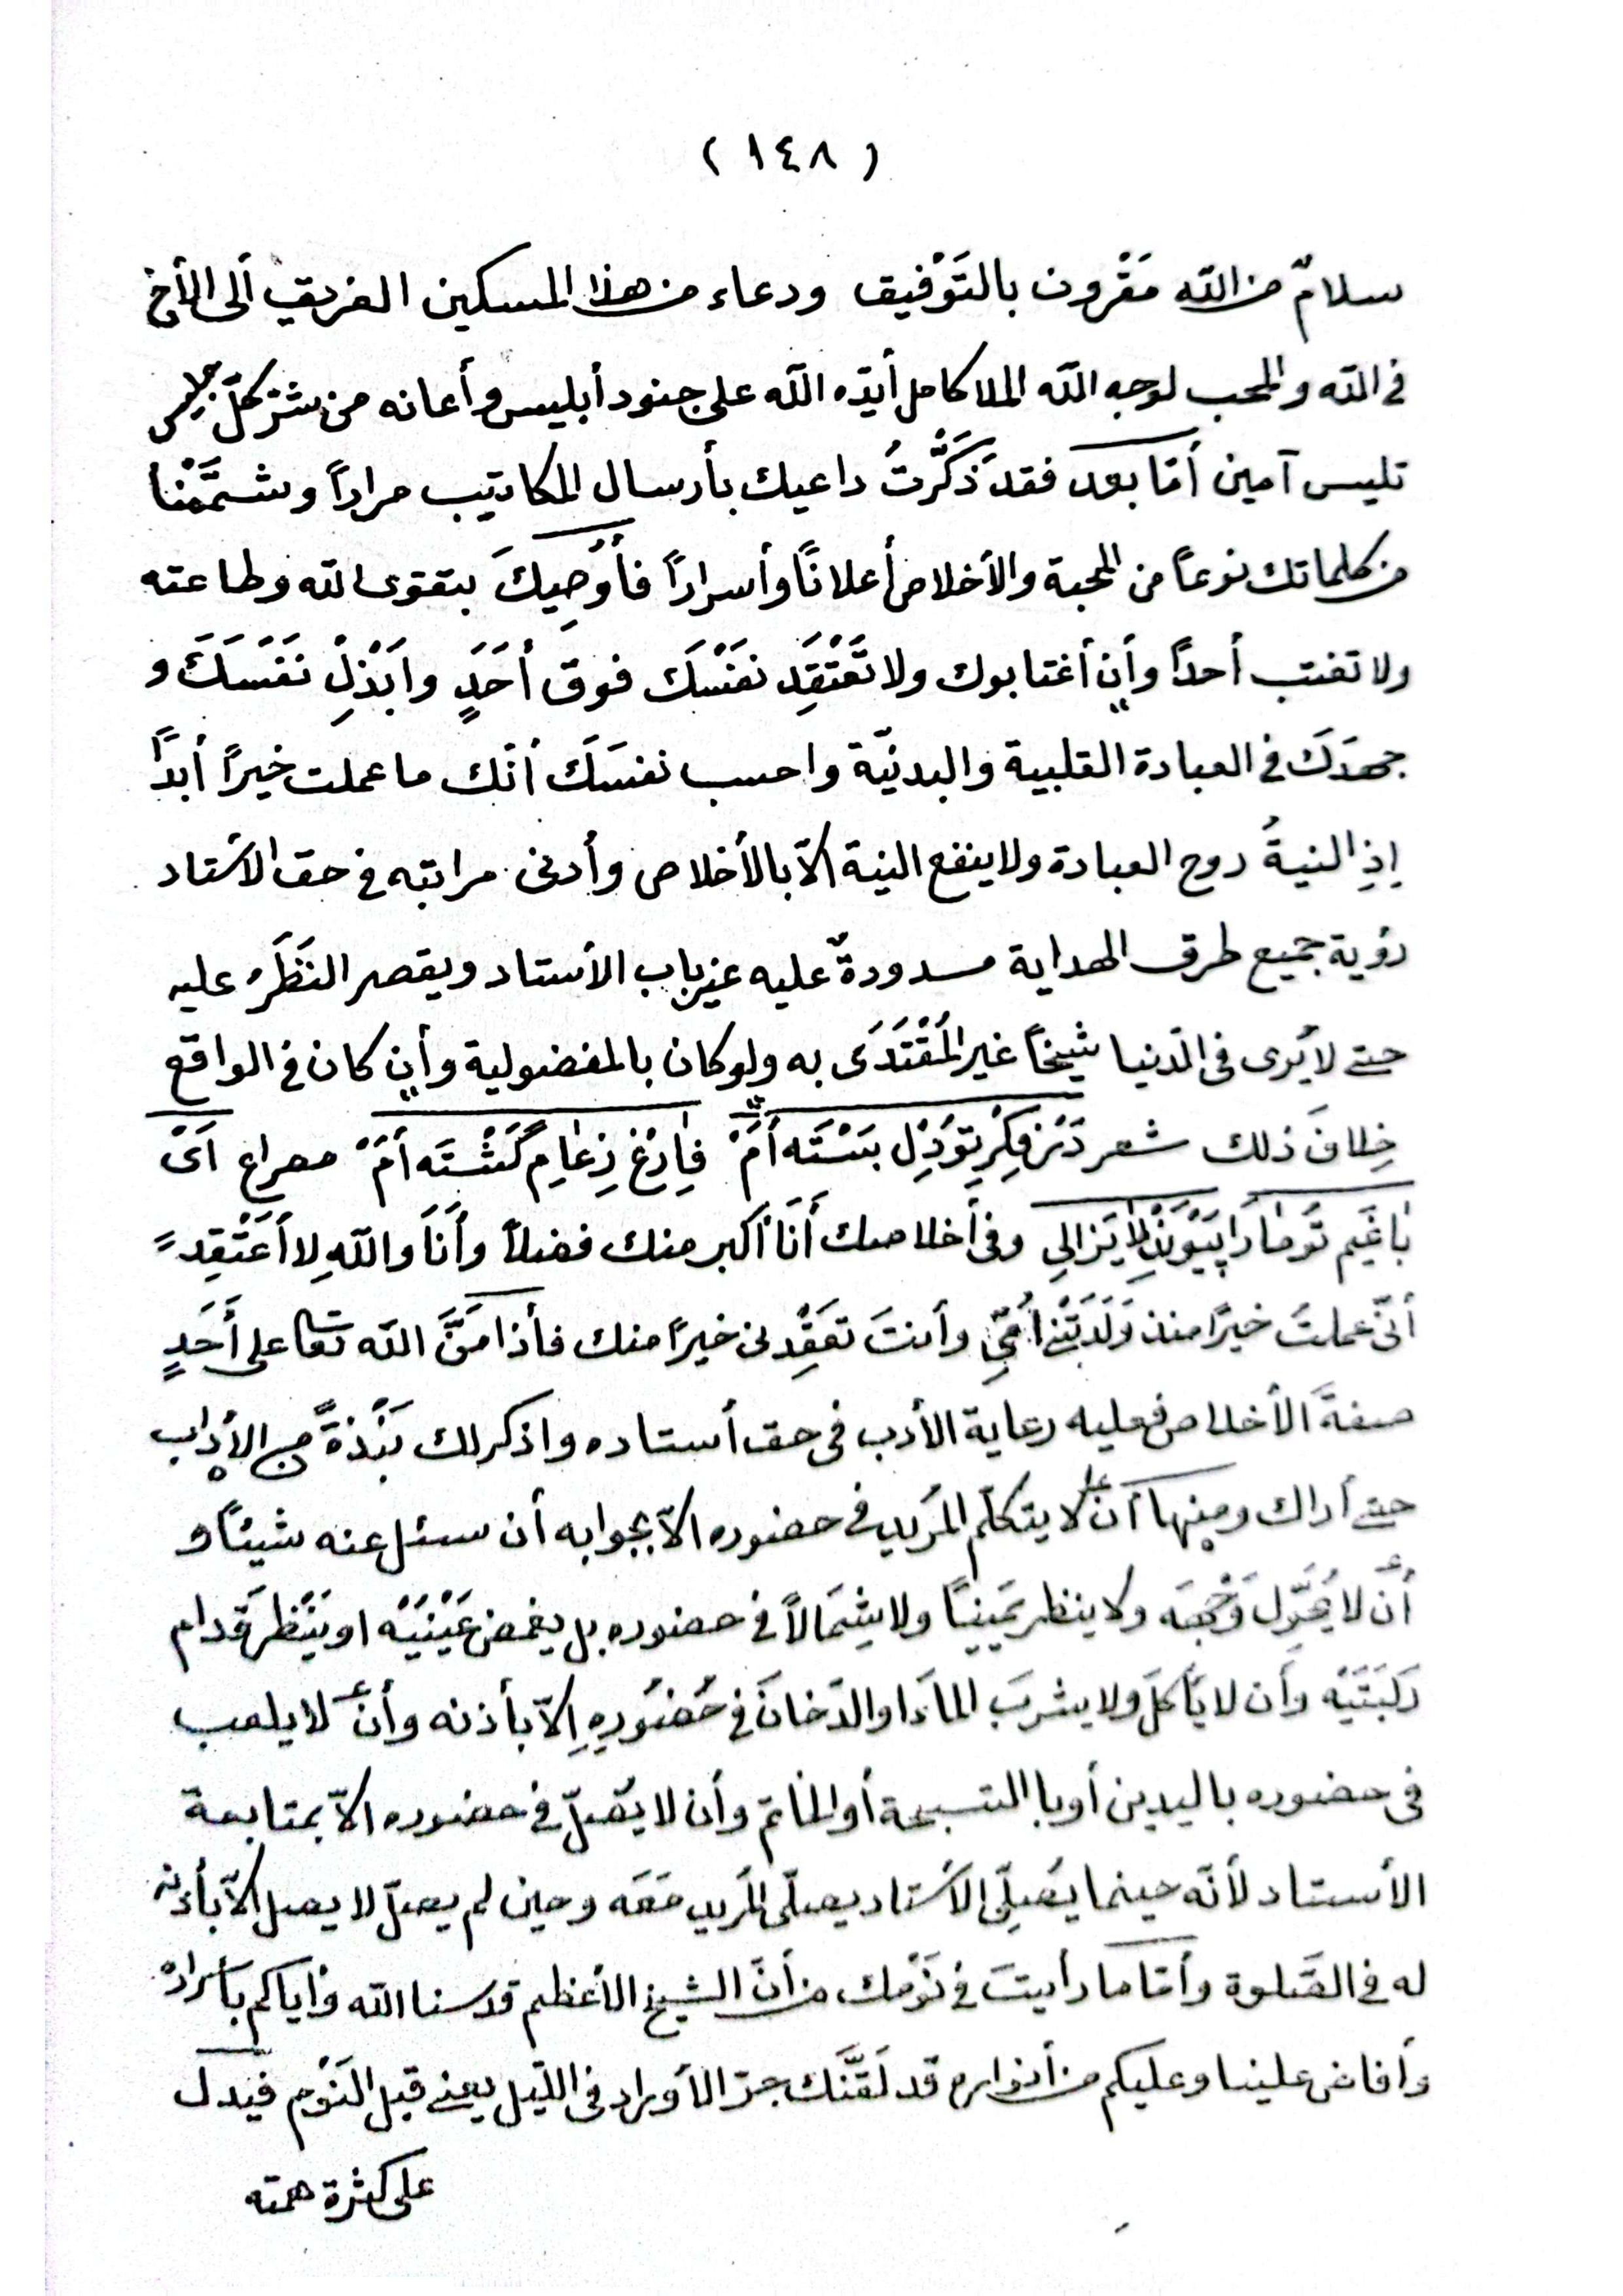 ( ١٤٨ )
سلامٌ من الله مَقْرون بالتَوْفيق ودعاء من هذا المسكين الغريق ألى الأخ
فى الله والمحب لوجه الله الملا كامل أيّده الله على جنود أبليس وأعانه من شرّ كلّ
تلبيس آمين أمّا بعد فقد ذَكَّرْتُ داعيك بأرسال المكاتيب مراراً وشمَّمْنا
من كلماتك نوعاً من المحبة والأخلاص أعلاناً وأسراراً فأُوصِيكَ بتقوى الله وطاعته
ولا تغتب أحداً وأن أغتابوك ولا تَعْتَقِد نفَسْكَ فوق أحَدٍ وابَذِلْ نَفَسَكَ و
جهدَكَ فى العبادة القلبية والبدنيّة واحسب نفسَكَ أنّك ما عملت خيراً أبداً
إذِ النيةُ روح العبادة ولا ينفع النية الاّ بالأخلاص وأدنى مراتبه فى حق الأستاد
رؤية جميع طرق الهداية مسدودةٌ عليه غير باب الأستاد ويقصر النَظَرَ عليه
حتى لا يُرى فى الدنيا شيخاً غير المُقْتَدَى به ولو كان بالمفضولية وأن كان فى الواقع
خِلافَ ذلك شعر دَرْ فِكْرِ تودِل بَسْتَه أمْ فارِغْ زِعامِ گَشْتَه أمْ مصراع اَىْ
باغَيم تَوما رَا پَيْوَنْدِ لا يَزالِى وفى أخلاصك أنَا أكبر منك فضلاً وأنَا واللهِ لا أعَتْقِد
أنّى عملتَ خيرًا منذ وَلَدَتْنى اُمّى وأنتَ تعَقِدنى خيرًا منك فأذا مَنَّ الله تعا على أَحَدٍ
صفةَ الأخلاص فعليه رعاية الأدب فى حق أستاده واذكر لك نَبْذةً من الأداب
حتى أراك ومنها أن لا يتكلّم المريد فى حضوره الاّ بجوابه أن سئل عنه شيئاً و
أن لا يُحَوِّل وَجْهَه ولا ينظر يَميِناً ولا شِمَالاً فى حضوره بل يغمض عَيْنَيْه او يَنْظر قَدام
رَكبَتَيْه وأن لا يَأكلَ ولا يشربَ الماءَ او الدّخانَ فى حُضُورِهِ إلاّ بأذنه وأن لا يلعب
فى حضوره باليدين أوبا التسبيحة أو الخاتم وأن لا يُصلّ فى حضوره الاّ بمتابعة
الأستاد لأنّه حينما يُصلِّى الأستاد يصلّى المريد مَعَه وحين لم يصلّ لا يصل الاّ بأذنه
له فى الصَّلوة وأمّا ما رأيتَ فى نَوْمك من أنّ الشيخ الأعظم قدسنا الله وأياكم بأسراره
وأفاض علينا وعليكم من أنواره قد لَقَّنَك جرّ الأوراد فى الليل يعنى قبل النَوْم فيدل
على كثرة همته